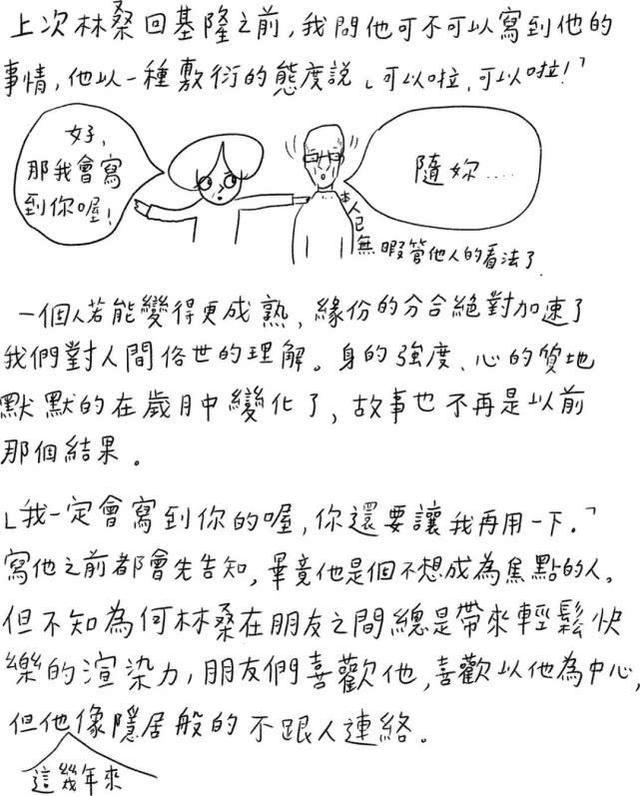 上次林桑回基隆之前,我問他可不可以寫到他的
事情,他以一種敷衍的態度說「可以啦,可以啦!」
好,
那我會寫
到你喔!
隨妳....
本人已無暇管他人的看法了.
一個人若能變得更成熟,緣份的分合絕對加速了
我們對人間俗世的理解。身的強度、心的質地
默默的在歲月中變化了,故事也不再是以前
那個結果。
「我一定會寫到你的喔,你還要讓我再用一下.」
寫他之前都會先告知,畢竟他是個不想成為焦點的人。
但不知為何林桑在朋友之間總是帶來輕鬆快
樂的渲染力,朋友們喜歡他,喜歡以他為中心,
但他像隱居般的不跟人連絡。
這幾年來